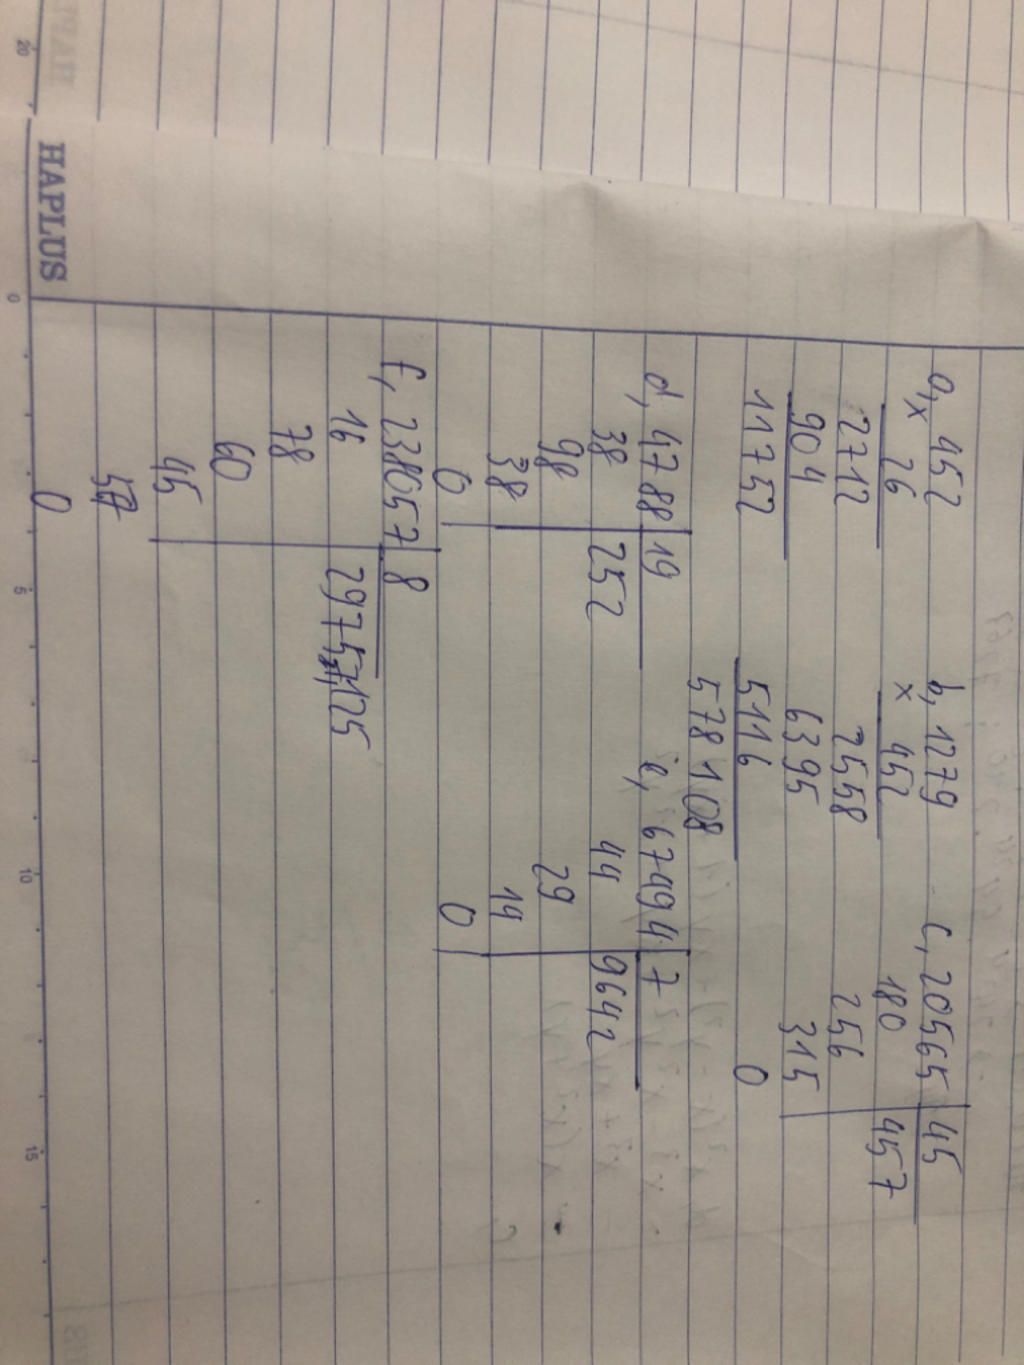 a, 452 b, 1279 c, 20565 45
x 26 x 452 180 457
2712 2558 256
904 6395 315
11752 5116 0
578108
d, 4788 19 e, 67494 7
38 252 44 9642
98 29
38 14
0 0
f, 238057 8
16 29757,125
78
60
45
57
0
HAPLUS
20 0 5 10 15